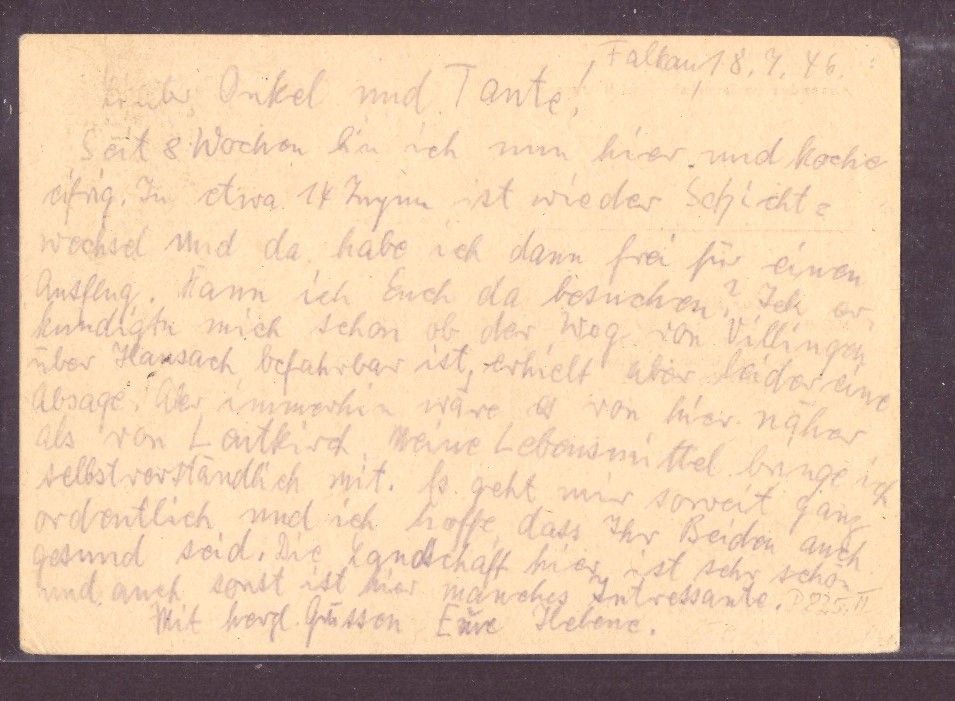 Falkau 18.7.46.
Onkel und Tante!
Seit 8 Wochen bin ich nun hier und koche
eifrig. In etwa 14 ist wieder Schicht=
wechsel und da habe ich dann frei für einen
Ausflug. Kann ich Euch da besuchen? Ich er,
kundigte mich schon ob der Weg von Villingen
über Hausach befahrbar ist, erhielt aber leider eine
Absage. Aber immerhin wäre es von hier näher
als von Leutkirch. Meine Lebensmittel bringe ich
selbstverständlich mit. Es geht mir soweit ganz
ordentlich und ich hoffe, dass Ihr Beiden auch
gesund seid. Die Landschaft hier ist sehr schön
und auch sonst ist hier manches Intressante.
Mit herzl. Grüssen Eure